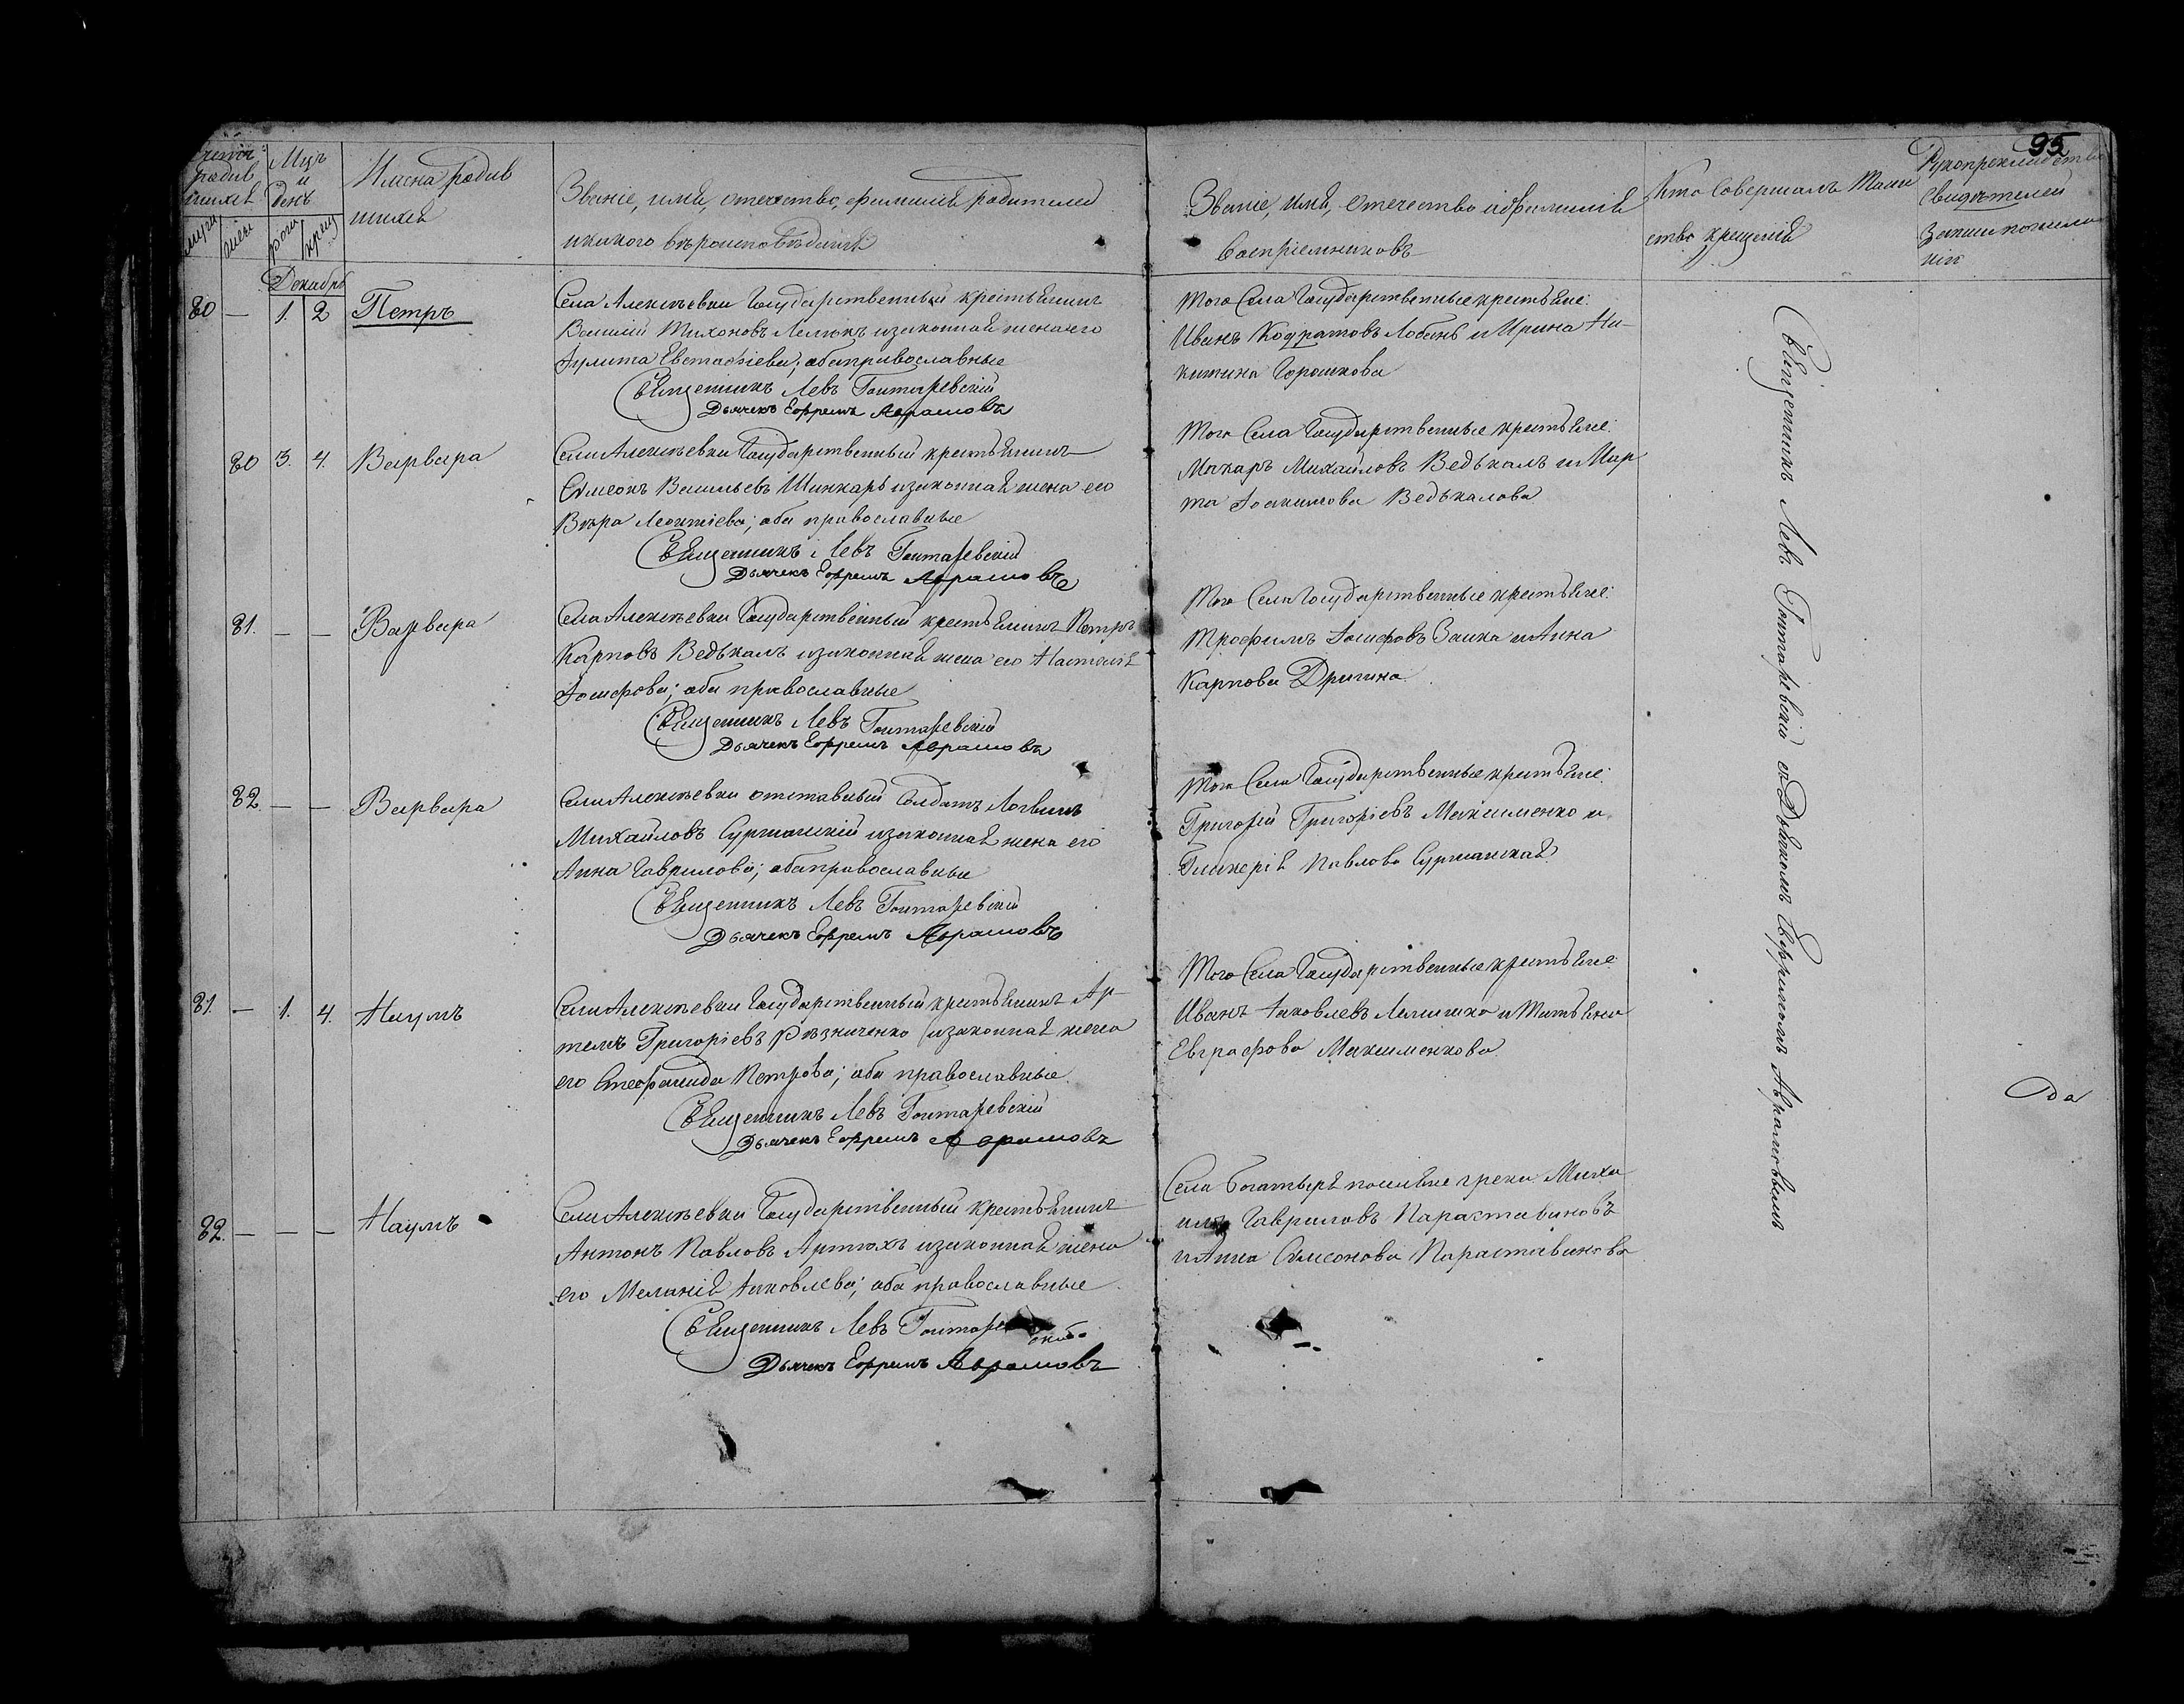 95
Счетъ родив шихся
Мцъ и день
Имена родив
шихся
Званіе, имя, отечество, фамилія родителей
и какого вѣроисповѣданія
Званіе, имя, отечество и фамилія
Воспріемниковъ
Кто Совершалъ Таин
ство крещенія
Свидѣтелей
муж
жен
рож
крещ
Декабрь
80 — 1. 2 Петръ
Села Алексѣевки Государственный крестьянинъ
Василій Тихоновъ Лелюкъ и законная жена его
Іулита Евстафіева; оба православные
Священникъ Левъ Гонтаревскій
Дьячекъ Ефремъ Аврамовъ
Того Села Государственные крестьяне:
Иванъ Кодратовъ Лобань и Ирина Ни-
китина Горошкова
80 3. 4. Варвара
Села Алексѣевки Государственный крестьянинъ
Симеонъ Васильевъ Шинкарь и законная жена его
Вѣра Леонтіева; оба православные
Священникъ Левъ Гонтаревскій
Дьячекъ Ефремъ Аврамовъ
Того Села Государственные крестьяне:
Макаръ Михайловъ Ведькалъ и Мар
та Іоакимова Ведькалова
81. — — Варвара
Села Алексѣевки Государственный крестьянинъ Петръ
Карповъ Ведькалъ и законная жена его Настасія
Іосифова; оба православные
Священникъ Левъ Гонтаревскій
Дьячекъ Ефремъ Аврамовъ
Того Села Государственные крестьяне:
Трофимъ Іосифовъ Заика и Анна
Карпова Дригина
82. — — Варвара
Села Алексѣевки отставный Солдатъ Логвинъ
Михайловъ Суржанскій и законная жена его
Анна Гаврилова; оба православные
Священникъ Левъ Гонтаревскій
Дьячекъ Ефремъ Аврамовъ
Того Села Государственные крестьяне:
Григорій Григоріевъ Максименко и
Гликерія Павлова Суржанская
81. — 1. 4. Наумъ
Села Алексѣевки Государственный крестьянинъ Ар-
темъ Григоріевъ Рѣзниченко и законная жена
его Стефанида Петрова; оба православные
Священникъ Левъ Гонтаревскій
Дьячекъ Ефремъ Аврамовъ
Того Села Государственные крестьяне:
Иванъ Іаковлевъ и Татьяна
Евграфова Максименкова
82. — — — Наумъ
Села Алексѣевки Государственный крестьянинъ
Антонъ Павловъ Артюхъ и законная жена
его Меланія Іаковлева; оба православные
Священникъ Левъ Гонтаревскій
Дьячекъ Ефремъ Аврамовъ
Села Богатыря поселяне греки Миха
илъ Гавриловъ Параставиновъ
и Анна Симеонова Параставинова
Священникъ Левъ Гонтаревскій съ Дьячкомъ Ефремомъ Аврамовымъ